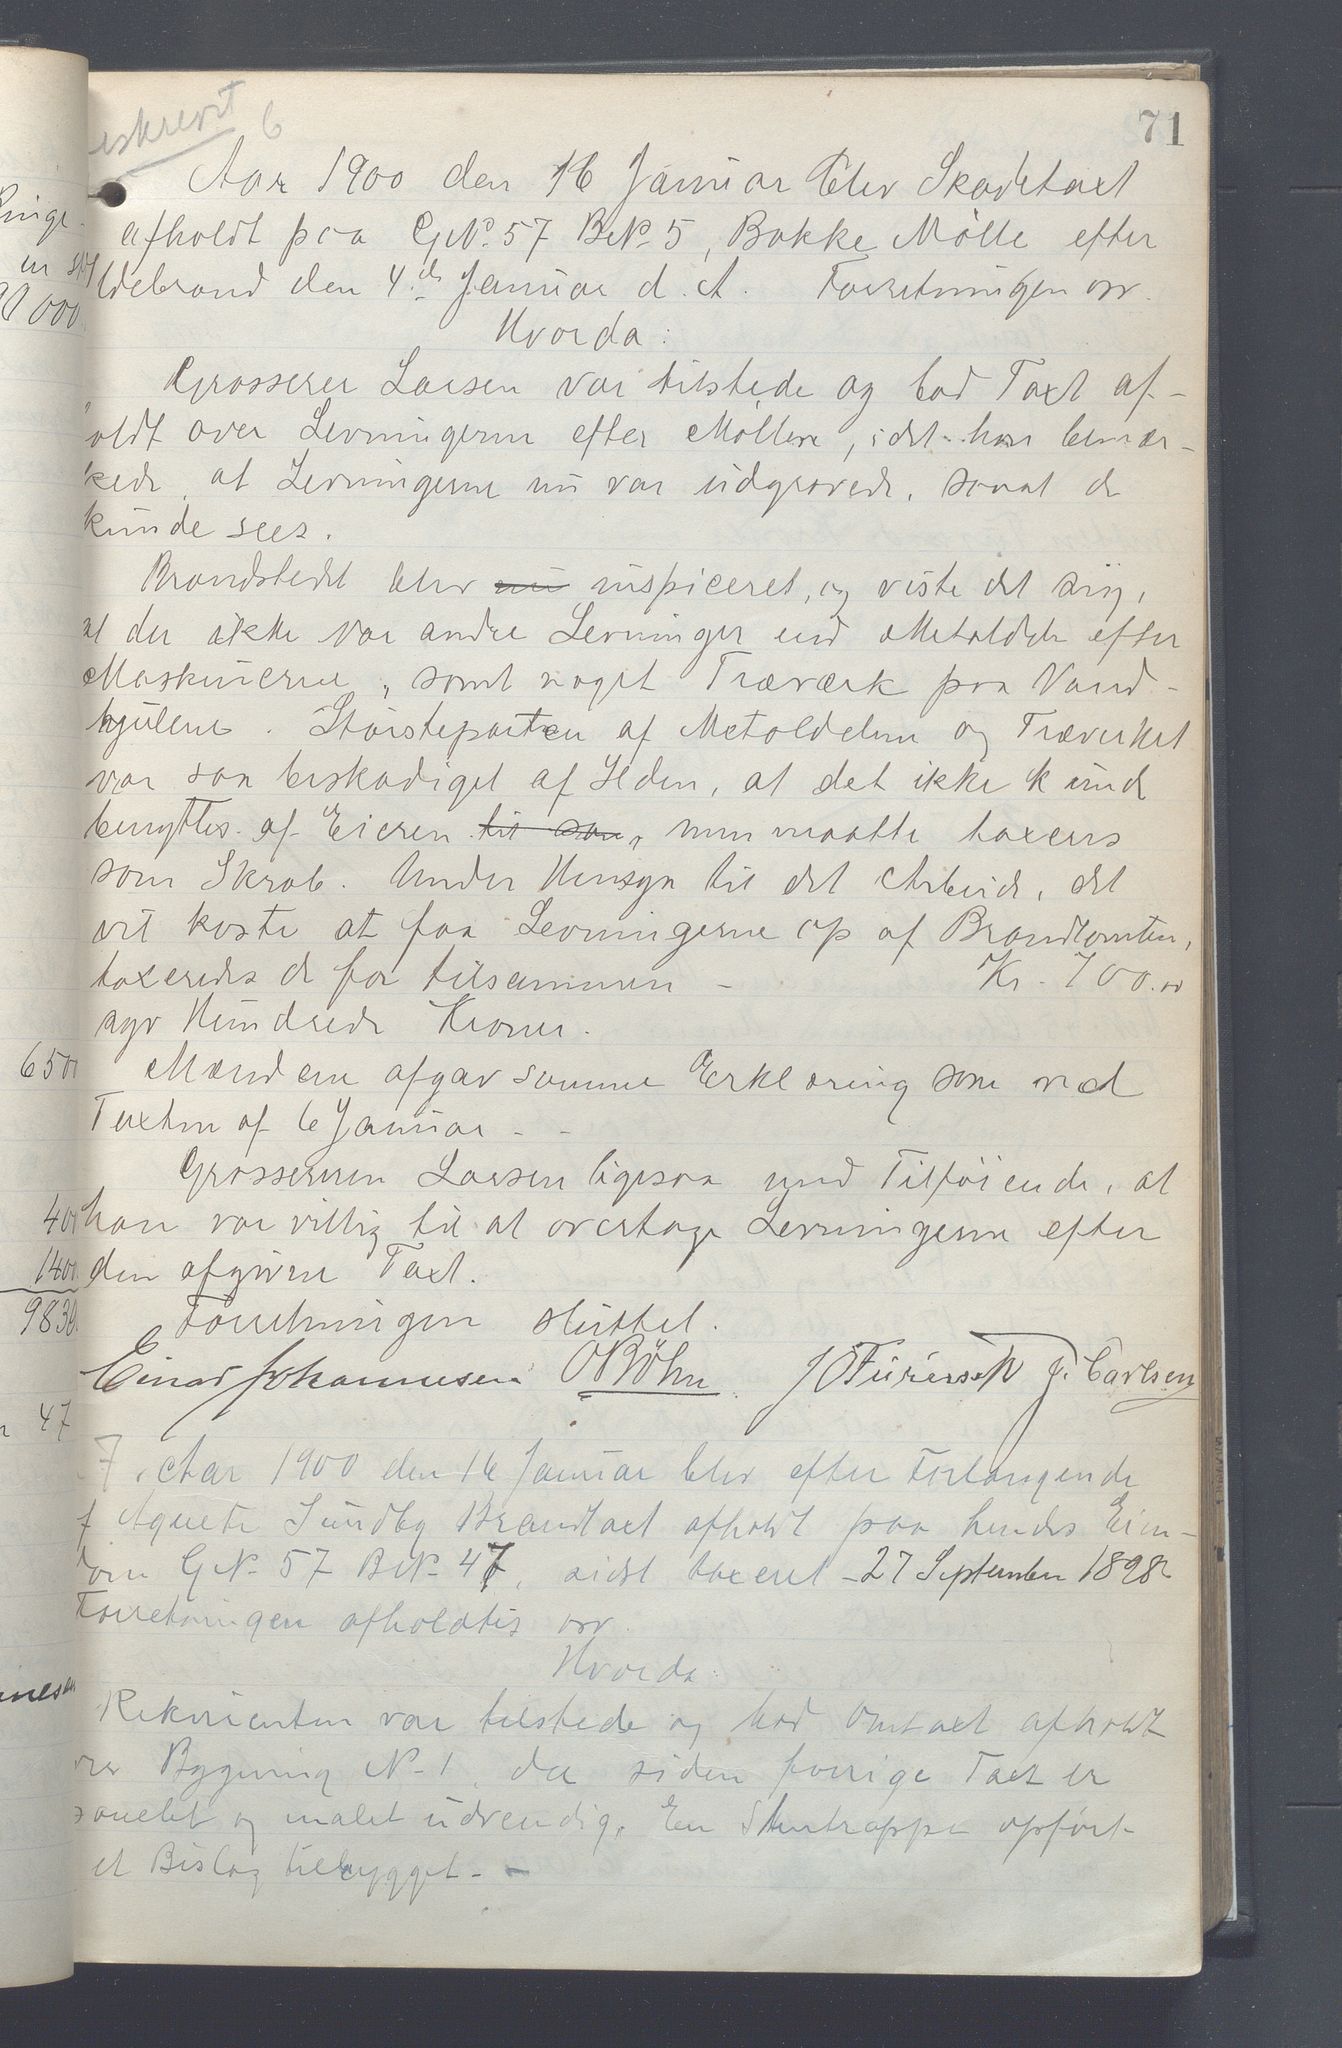 71
eskrevet 6
Aar 1900 den 16 Januar blev Skadetaxt
afholdt paa GNo 57 BNo 5, Bakke Mølle efter
Ildebrand den 4de Januar d. A. Forretningen
Hvorda:
Grosserer Larsen var tilstede og bad Taxt af-
oldt over Levningerne efter Møllen, idet han bemær-
kede, at Levningerne nu var udgravede, saaat de
kunde sees.
Brandstedet blev nu inspiceret, og viste det sig,
at der ikke var andre Levninger end Metaldele efter
Maskinerne, samt noget Træværk paa Vand-
hjulene. Størsteparten af Metaldelene og Træverket
var saa beskadiget af Ilden, at det ikke kunde
benyttes af Eieren til saa, men maatte taxeres
som Skrab. Under Hensyn til det Arbeide, det
vil koste at faa Levningerne op af Brandtomten,
taxeredes de for tilsammen - Kr. 700.00
syv Hundrede Kroner.
Mændene afgav samme Erklæring som ved
Taxten af 6 Januar - -
Grossereren Larsen ligesaa med Tilføiende, at
han var villig til at overtage Levningerne efter
den afgivne Taxt.
Forretningen sluttet.
Einar Johannesen O Bøhn J. Carlsen
Aar 1900 den 16 Januar blev efter Forlangende
f Agnete Sundby Brandtaxt afholdt paa hendes Eien-
dom GNo 57 BNo 47, sidst taxeret - 27 September 1898
Forretningen afholdtes
Hvorda:
Rekvirenten var tilstede og bad Omtaxt afholdt
ver Bygning No 1, da siden forrige Taxt er
panelet og malet udvendig, En Stentrappe opført
et Bislag tilbygget - -
Ringe-
91000
650
400
1400
9830
47